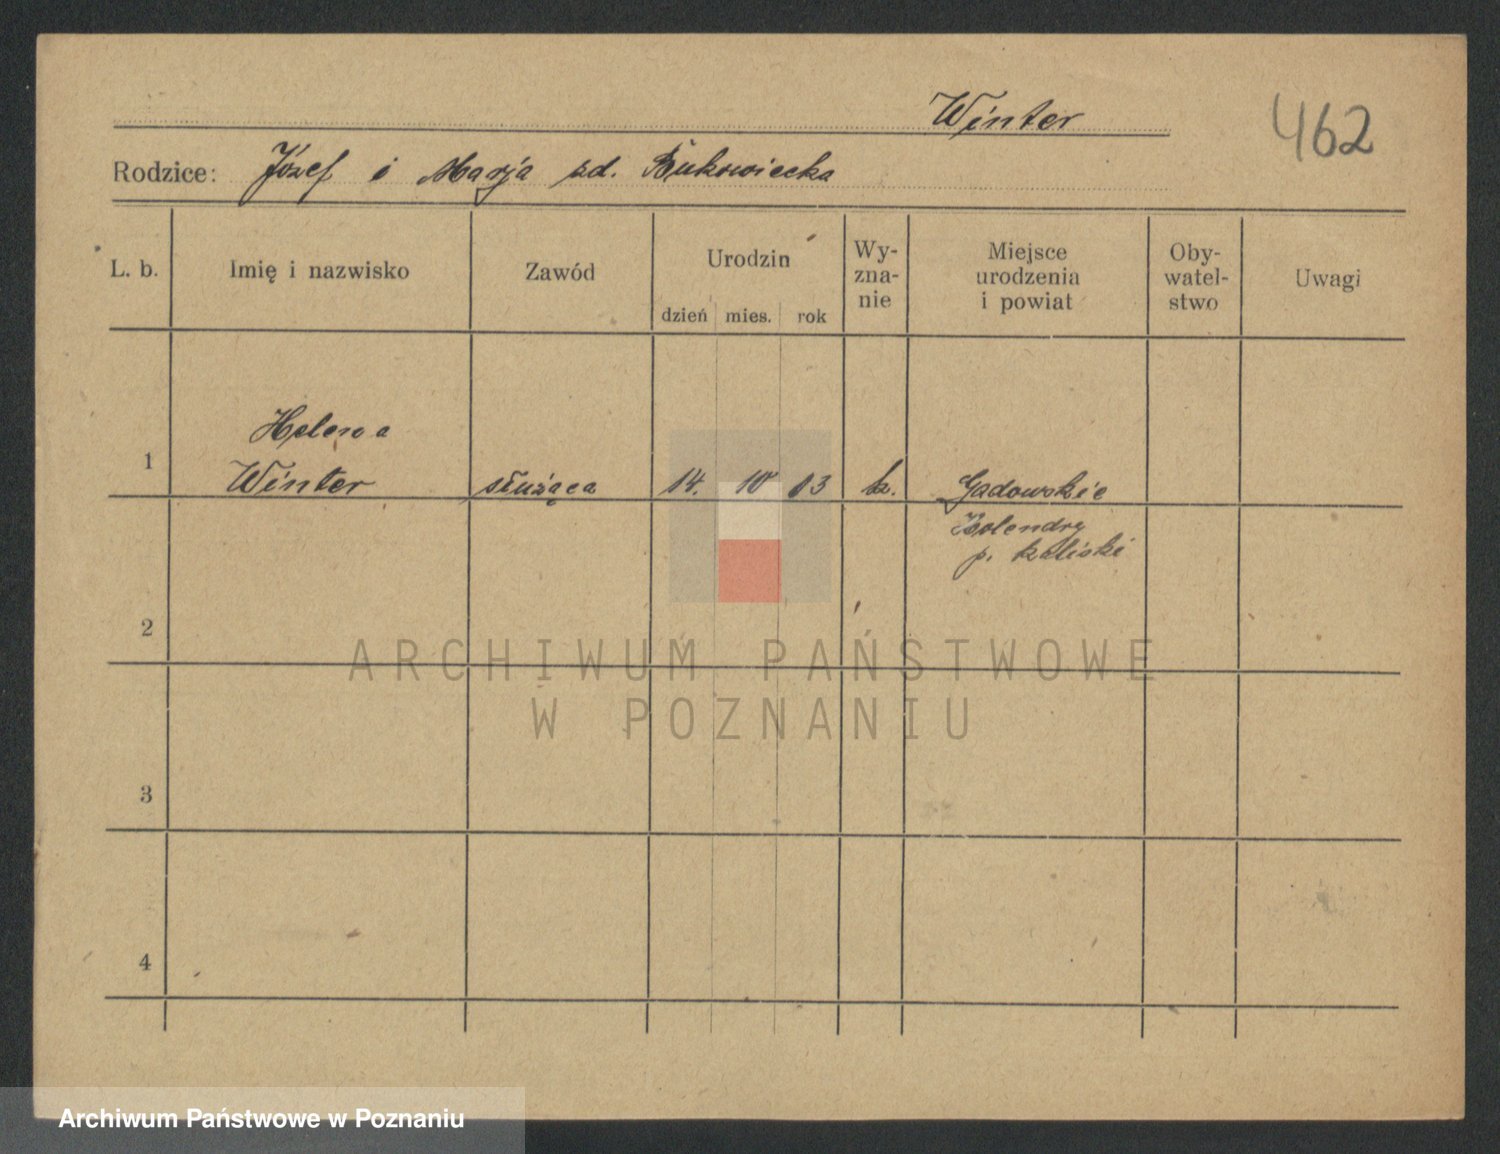 Winter
462
Rodzice: Józef i Marja zd. Bukowiecka
L. b.
Imię i nazwisko
Zawód
Urodzin
dzień mies. rok
Wy-
zna-
nie
Miejsce
urodzenia
i powiat
Oby-
watel-
stwo
Uwagi
Helena
1 Winter służąca 14. 10 13 k. Gadowskie
Holendry
p. kaliski
2
ARCHIWUM PAŃSTWOWE
W POZNANIU
3
4
Archiwum Państwowe w Poznaniu